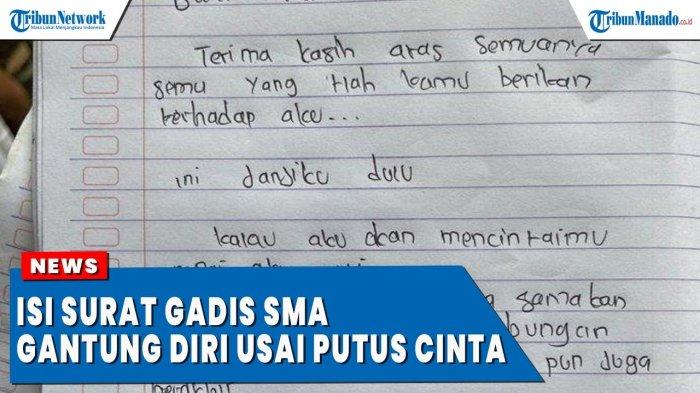 Tribun Network
Mata Lokal Menjangkau Indonesia
TribunManado.co.id
Terima kasih atas semuanya
semu yang tlah kamu berikan
terhadap aku...
ini Janjiku dulu
kalau aku akan mencintaimu
samakan
bungan
pun Juga
NEWS
ISI SURAT GADIS SMA
GANTUNG DIRI USAI PUTUS CINTA